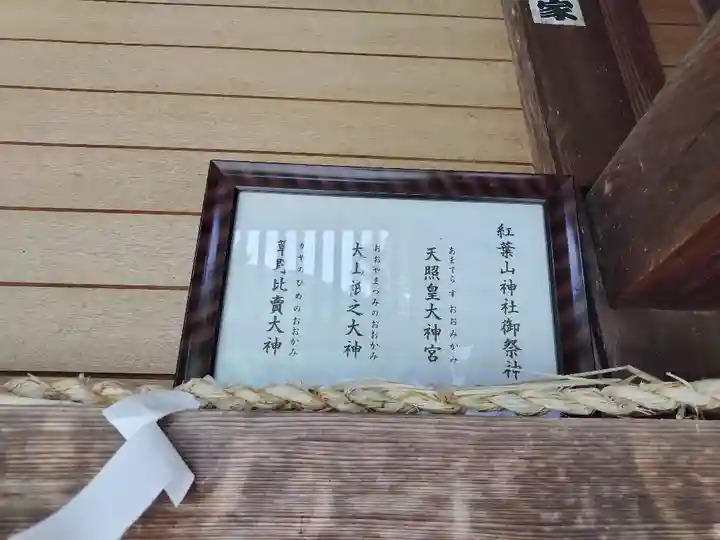 紅葉山神社御祭神
あまてらすおおみかみ
天照皇大神宮
おおやまつみのおおかみ
大山祇之大神
かやのひめのおおかみ
草野比賣大神
家